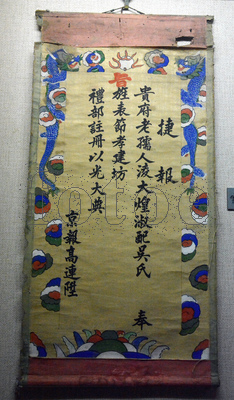 捷報
貴府老孺人淩大煌淑配吳氏 奉
旨旌表節孝建坊
禮部註冊以光大典
京報高連陞